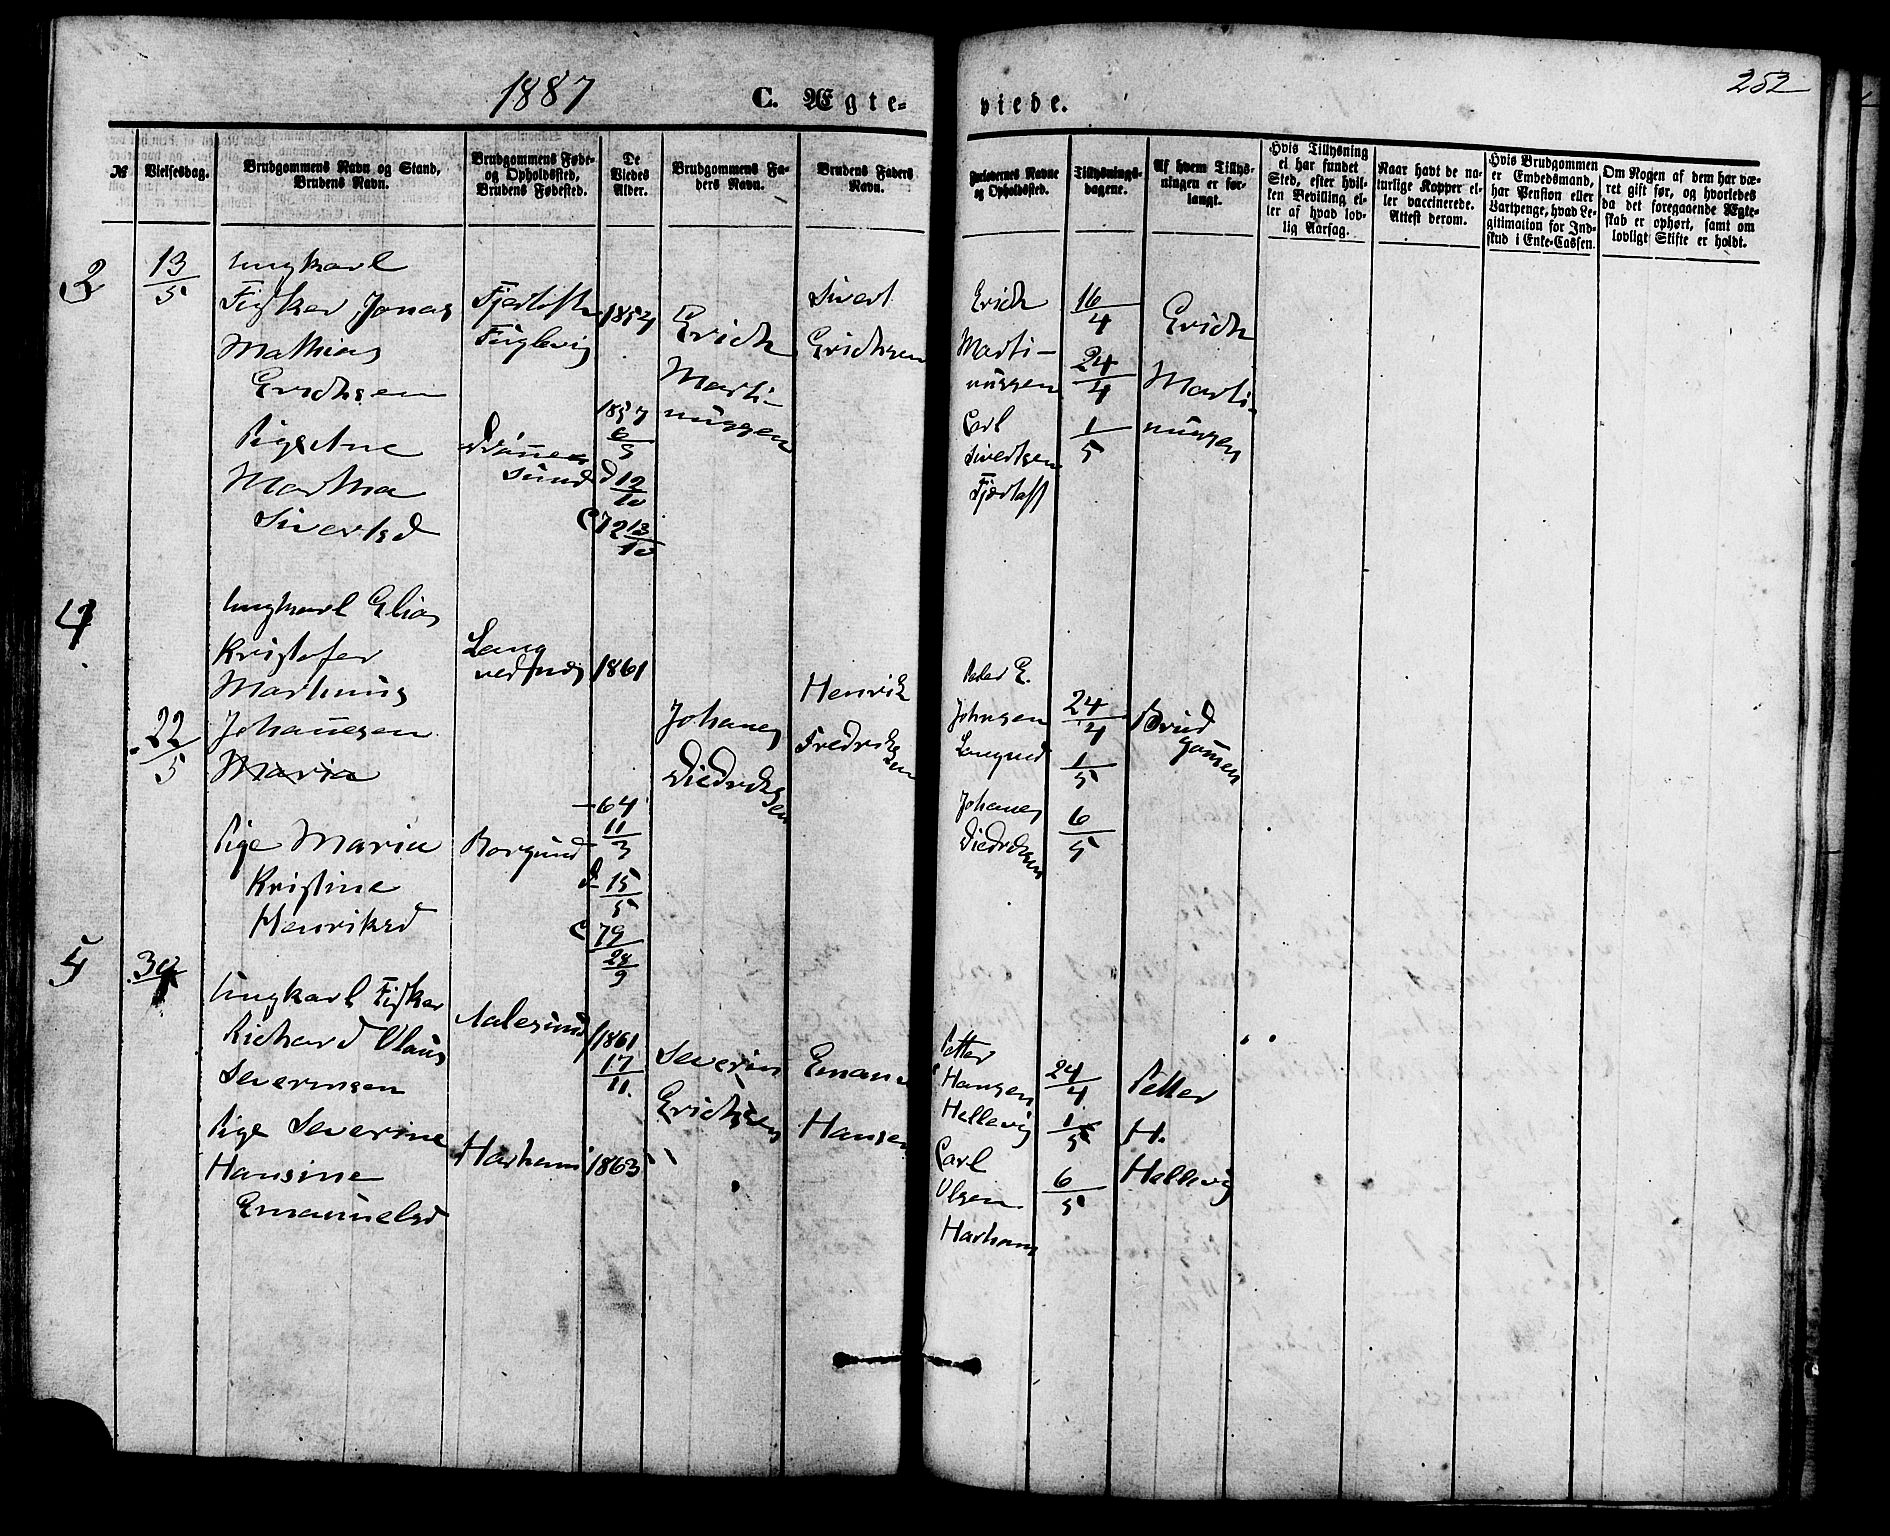 1887
C. Ægte-
viede.
252
№
Vielsesdag.
Brudgommens Navn og Stand,
Brudens Navn.
Brudgommens Føde-
og Opholdssted,
Brudens Fødested.
De
Viedes
Alder.
Brudgommens Fa-
ders Navn.
Brudens Faders
Navn.
Forlovernes Navne
og Opholdssted.
Tillysnings-
dagene.
Af hvem Tillys-
ningen er for-
langt.
Hvis Tillysning
ei har fundet
Sted, efter hvil-
ken Bevilling el-
ler af hvad lov-
lig Aarsag.
Naar havt de na-
turlige Kopper el-
ler vaccinerede.
Attest derom.
Hvis Brudgommen
er Embedsmand,
har Pension eller
Vartpenge, hvad Le-
gitimation for Ind-
skud i Enke-Cassen.
Om Nogen af dem har væ-
ret gift før, og hvorledes
da det foregaaende Ægte-
skab er ophørt, samt om
lovligt Skifte er holdt.
3
13/5
Ungkarl
Fisker Jonas
Mathias
Erichsen
Pige Ane
Martha
Sivertsd
Fjørtoft
Fuglevig
1854
1857
6/3
d 12/10
C 72 13/10
Erich
Marti-
nussen
Sivert
Erichsen
Erich
Marti-
nussen
Carl
Sivertsen
Fjørtoft
16/4
24/4
1/5
Erich
Marti-
nussen
4
22/5
Ungkarl Elias
Kristofer
Martinus
Johannesen
Maria
Pige Maria
Kristine
Henriksd
Borgund
1861
64
11/3
d 15/5
C 79
28/9
Johanes
Diedriksen
Henrik
Fredriksen
Peder E.
Johnsen
Johanes
Diedriksen
24/4
1/5
6/5
Brud
gommen
5
30
Ungkarl Fisker
Richard Olaus
Severinsen
Pige Severine
Hansine
Emanuelsd
Aalesund
Harham
1861
17/11
1863
Severin
Erichsen
Emanuel
Hansen
Petter
Hansen
Hellevig
Carl
Olsen
Harham
24/4
1/5
6/5
Petter
H.
Hellevig